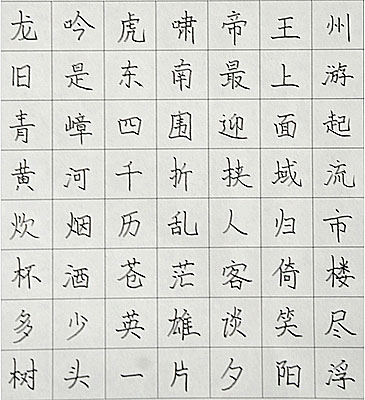 龙吟虎啸帝王州
旧是东南最上游
青嶂四围迎面起
黄河千折挟域流
炊烟历乱人归市
杯酒苍茫客倚楼
多少英雄谈笑尽
树头一片夕阳浮